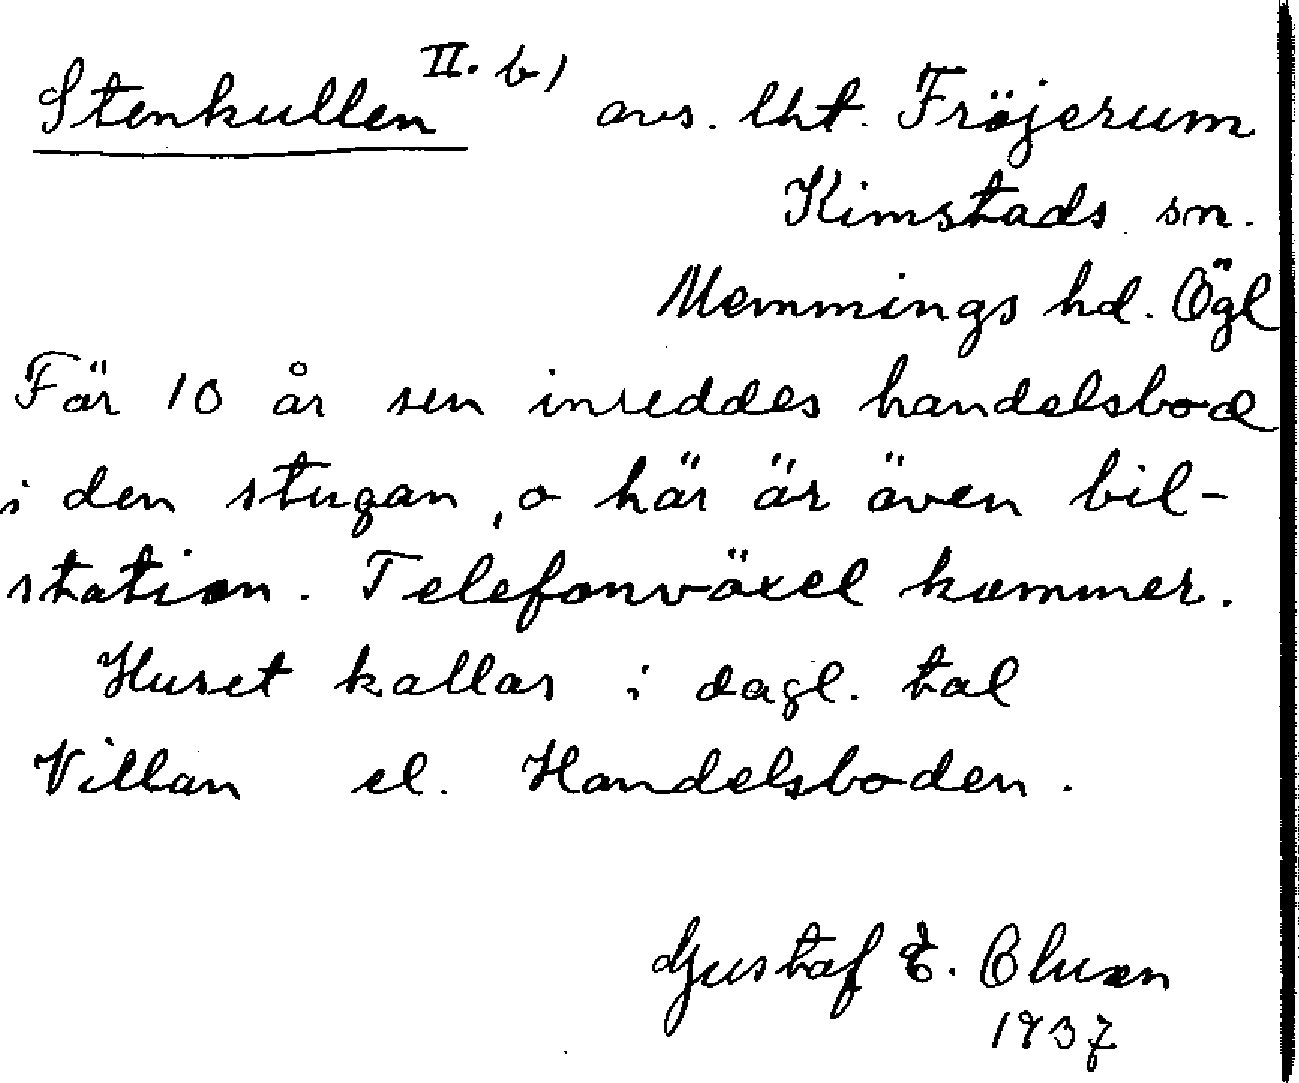 Stenkullen II. b) avs. lht. Fröjerum
Kimstads sn.
Memmings hd. Ögl
För 10 år sen inreddes handelsbod
i den stugan, o här är även bil-
station. Telefonväxel kommer.
Huset kallas i dagl. tal
Villan el. Handelsboden.
Gustaf E. Olusen
1937